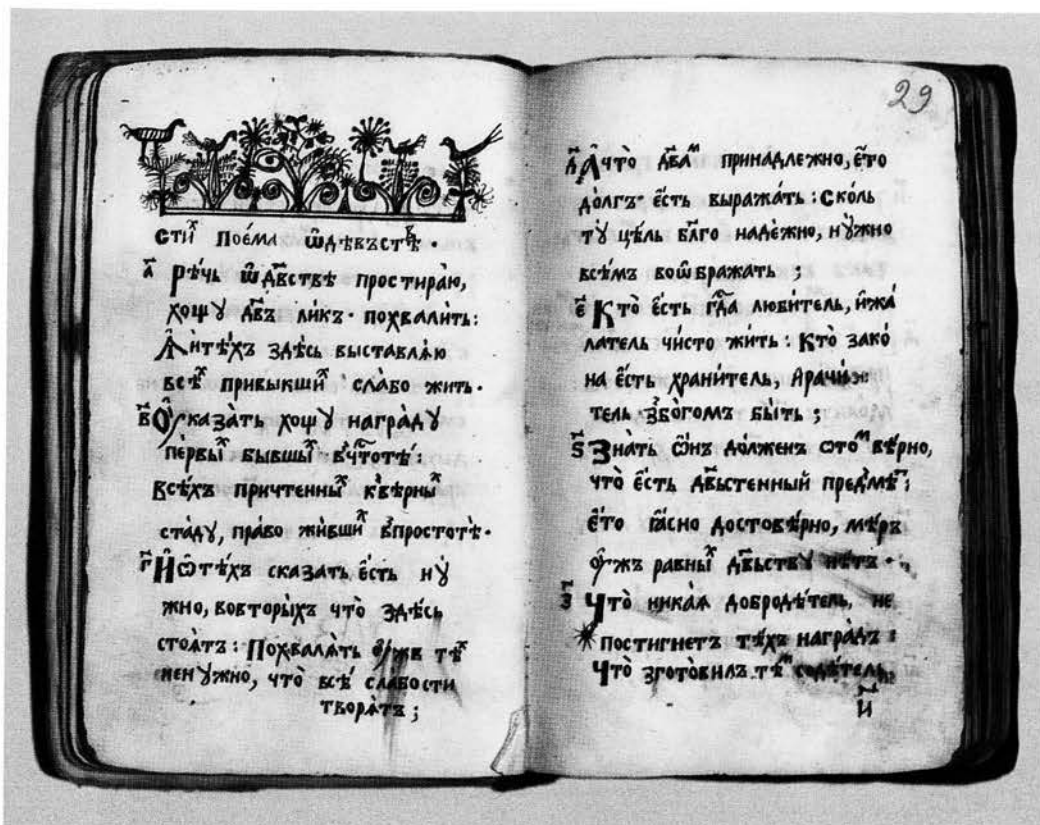 стиⷯ Пое́ма ѡ҆дѣвъстⷡѣ.
а҃ Рѣ́чь ѡ҆ дв҃ствѣ простира́ю,
хощу дв҃ъ ли́къ похвали́ть:
А҆ и҆тѣ́хъ здѣ́сь выставлѧ́ю
всѣⷯ привы́кшиⷯ сла́бо жить.
в҃ Оу҆каза́ть хощу награ́ду
пе́рвыⷯ бывшыⷯ вчⷭ҇тотѣ̀:
всѣ́хъ причте́нныⷯ кве́рныⷯ
ста́ду, пра́во жи́вшиⷯ впростотѣ̀.
г҃ И҆ ѡ҆тѣ́хъ сказа́ть е҆́сть ну́
жно, вовторы́хъ что̀ здѣ́сь
стоѧ́тъ: Похвалѧ́ть оу҆жъ тѣⷯ
ненужно, что̀ всѐ сла́бости
творѧ́тъ;
29
д҃ А҆ что̀ дв҃аⷨ принадлежно, е҆́то
до́лгъ е҆́сть выража́ть: ско́ль
ту цѣ́ль бл҃го наде́жно, ну́жно
всѣ́мъ воѡ҆бража́ть;
є҃ Кто̀ е҆́сть гдⷭ҇а люби́тель, и҆жа́
латель чи́сто жи́ть: Кто̀ зако́
на е҆́сть храни́тель, и҆рачи́
тель збо́гомъ бы́ть;
ѕ҃ Зна́ть ѻ҆́нъ до́лженъ ѻ҆томъ вѣ́рно,
что̀ е҆́сть дв҃ьстенный пред̾мѣⷮ;
е҆́то ꙗ҆́сно достовѣ́рно, мѣ́ръ
оу҆́жъ равныⷯ дв҃ьству нѣ́тъ.
з҃ Что̀ ника́ѧ добродѣ́тель, не
постигнетъ тѣ́хъ награ́дъ:
Что̀ згото́вилъ тѣⷨ содѣ́тель,
и҃